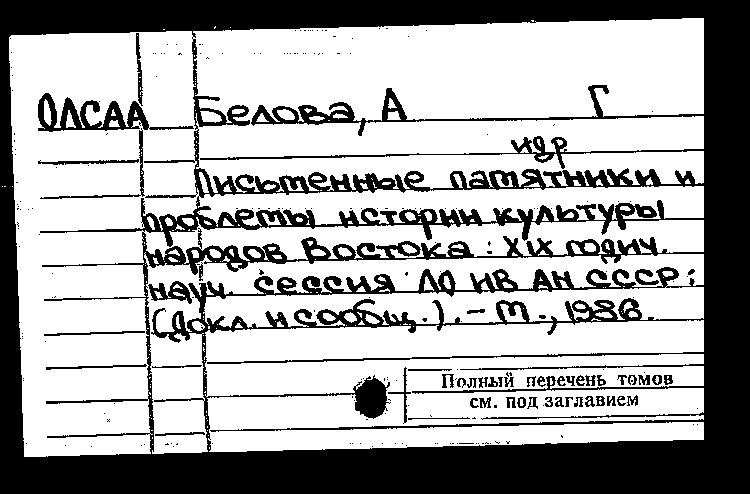 ОЛСАА Белова, А Г
идр
Письменные памятники и
проблемы истории культуры
народов Востока: XIX годич.
науч. сессия ЛО ИВ АН СССР:
(докл. и сообщ.). - М., 1986.
Полный перечень томов
см. под заглавием